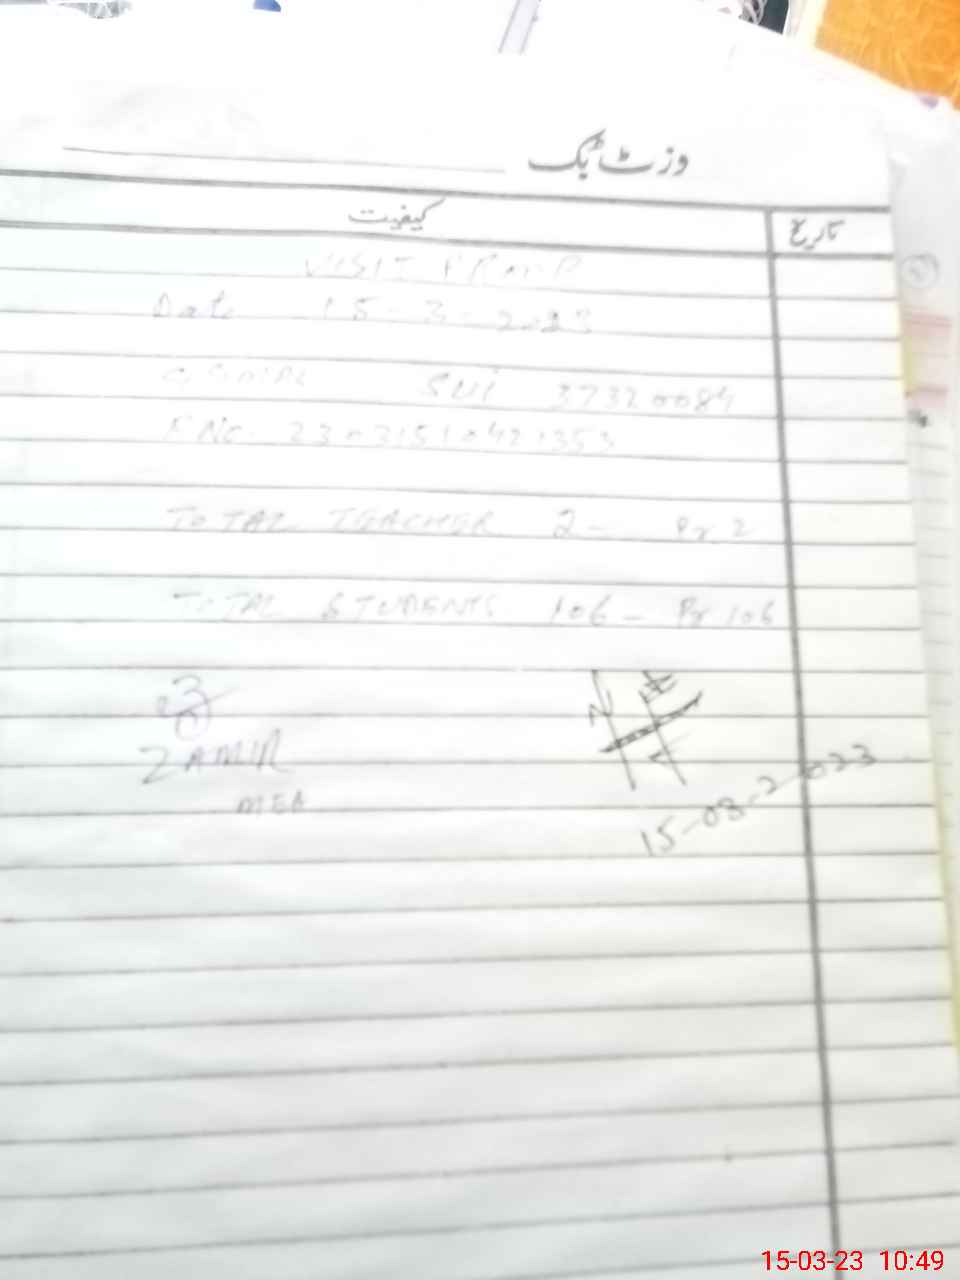 وزٹ بک
کیفیت تاریخ
VISIT PROOF
Date 15-3-2023
SUI 37320084
TOTAL TEACHER 2- Pr 2
TOTAL STUDENTS 106 - Pr 106
ZAMIR
MEA
15-03-2023
15-03-23 10:49